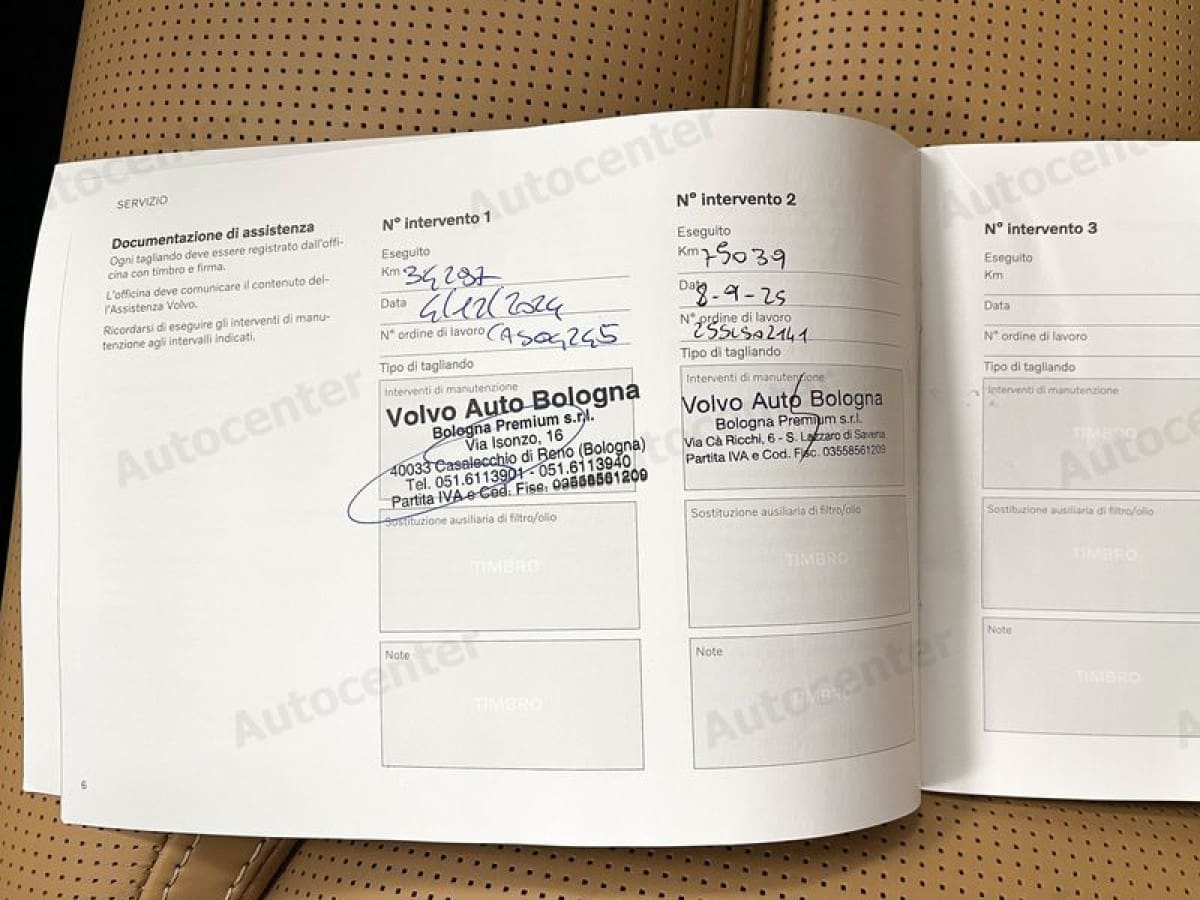 SERVIZIO
Documentazione di assistenza
Ogni tagliando deve essere registrato dall'offi-
cina con timbro e firma.
L'officina deve comunicare il contenuto del-
l'Assistenza Volvo.
Ricordarsi di eseguire gli interventi di manu-
tenzione agli intervalli indicati.
6
N° intervento 1
Eseguito
Km 34297
Data 4/12/2024
N° ordine di lavoro CAS04245
Tipo di tagliando
Interventi di manutenzione
Volvo Auto Bologna
Bologna Premium s.r.l.
Via Isonzo, 16
40033 Casalecchio di Reno (Bologna)
Tel. 051.6113901 - 051.6113940
Partita IVA e Cod. Fisc. 03558561209
Sostituzione ausiliaria di filtro/olio
TIMBRO
Note
TIMBRO
N° intervento 2
Eseguito
Km 75039
Data 8-9-25
N° ordine di lavoro
25SLS02141
Tipo di tagliando
Interventi di manutenzione
Volvo Auto Bologna
Bologna Premium s.r.l.
Via Cà Ricchi, 6 - S. Lazzaro di Savena
Partita IVA e Cod. Fisc. 03558561209
Sostituzione ausiliaria di filtro/olio
TIMBRO
Note
TIMBRO
N° intervento 3
Eseguito
Km
Data
N° ordine di lavoro
Tipo di tagliando
Interventi di manutenzione
TIMBRO
Sostituzione ausiliaria di filtro/olio
TIMBRO
Note
TIMBRO
Autocenter
Autocenter
Autocenter
Autocenter
Autocenter
Autocenter
Autocenter